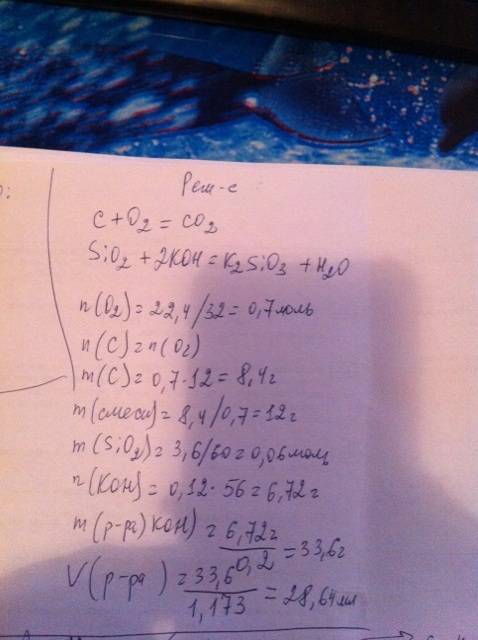 Реш-е
C + O₂ = CO₂
SiO₂ + 2KOH = K₂SiO₃ + H₂O
n(O₂) = 22,4/32 = 0,7моль
n(C) = n(O₂)
m(C) = 0,7·12 = 8,4г
m(смеси) = 8,4/0,7 = 12г
m(SiO₂) = 3,6/60 = 0,06моль
n(KOH) = 0,12·56 = 6,72г
m(р-ра)KOH) = 6,72г/0,2 = 33,6г
V(р-ра) = 33,6/1,173 = 28,64мл